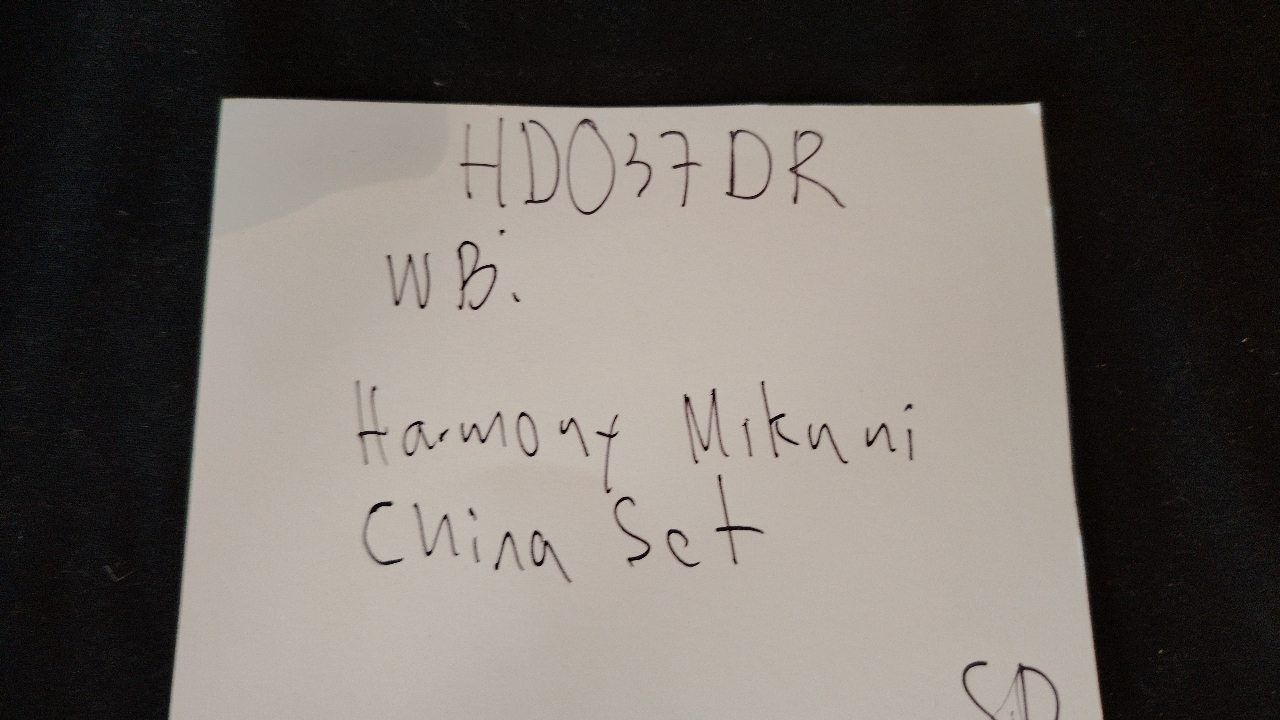 HD037DR
WB.
Harmony Mikuni
China Set
SD